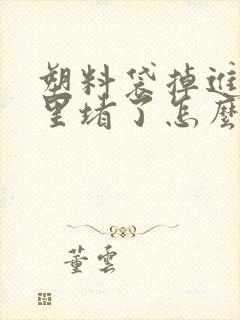 塑料袋掉进
里堵了怎麼
董雲